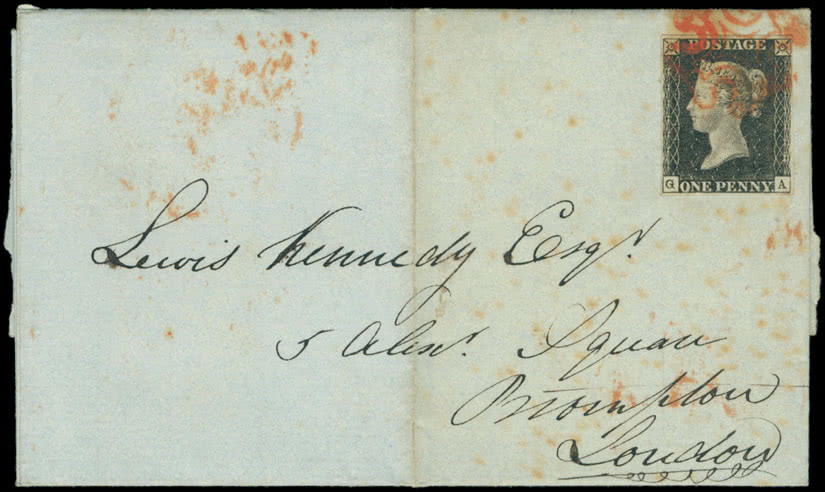 POSTAGE
G ONE PENNY A
Lewis Kennedy Esqr.
5 Alexr. Square
Brompton
London